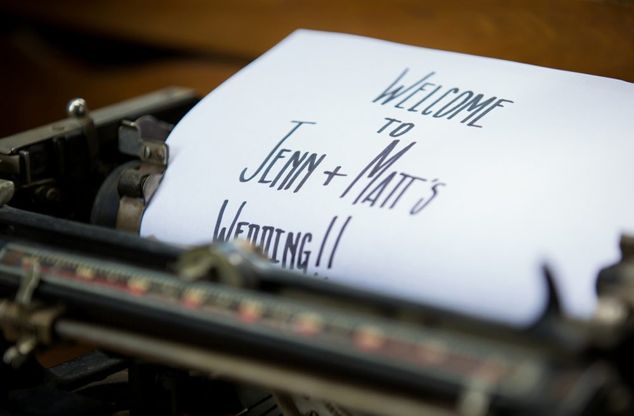 WELCOME
TO
JENN + MATT'S
WEDDING!!